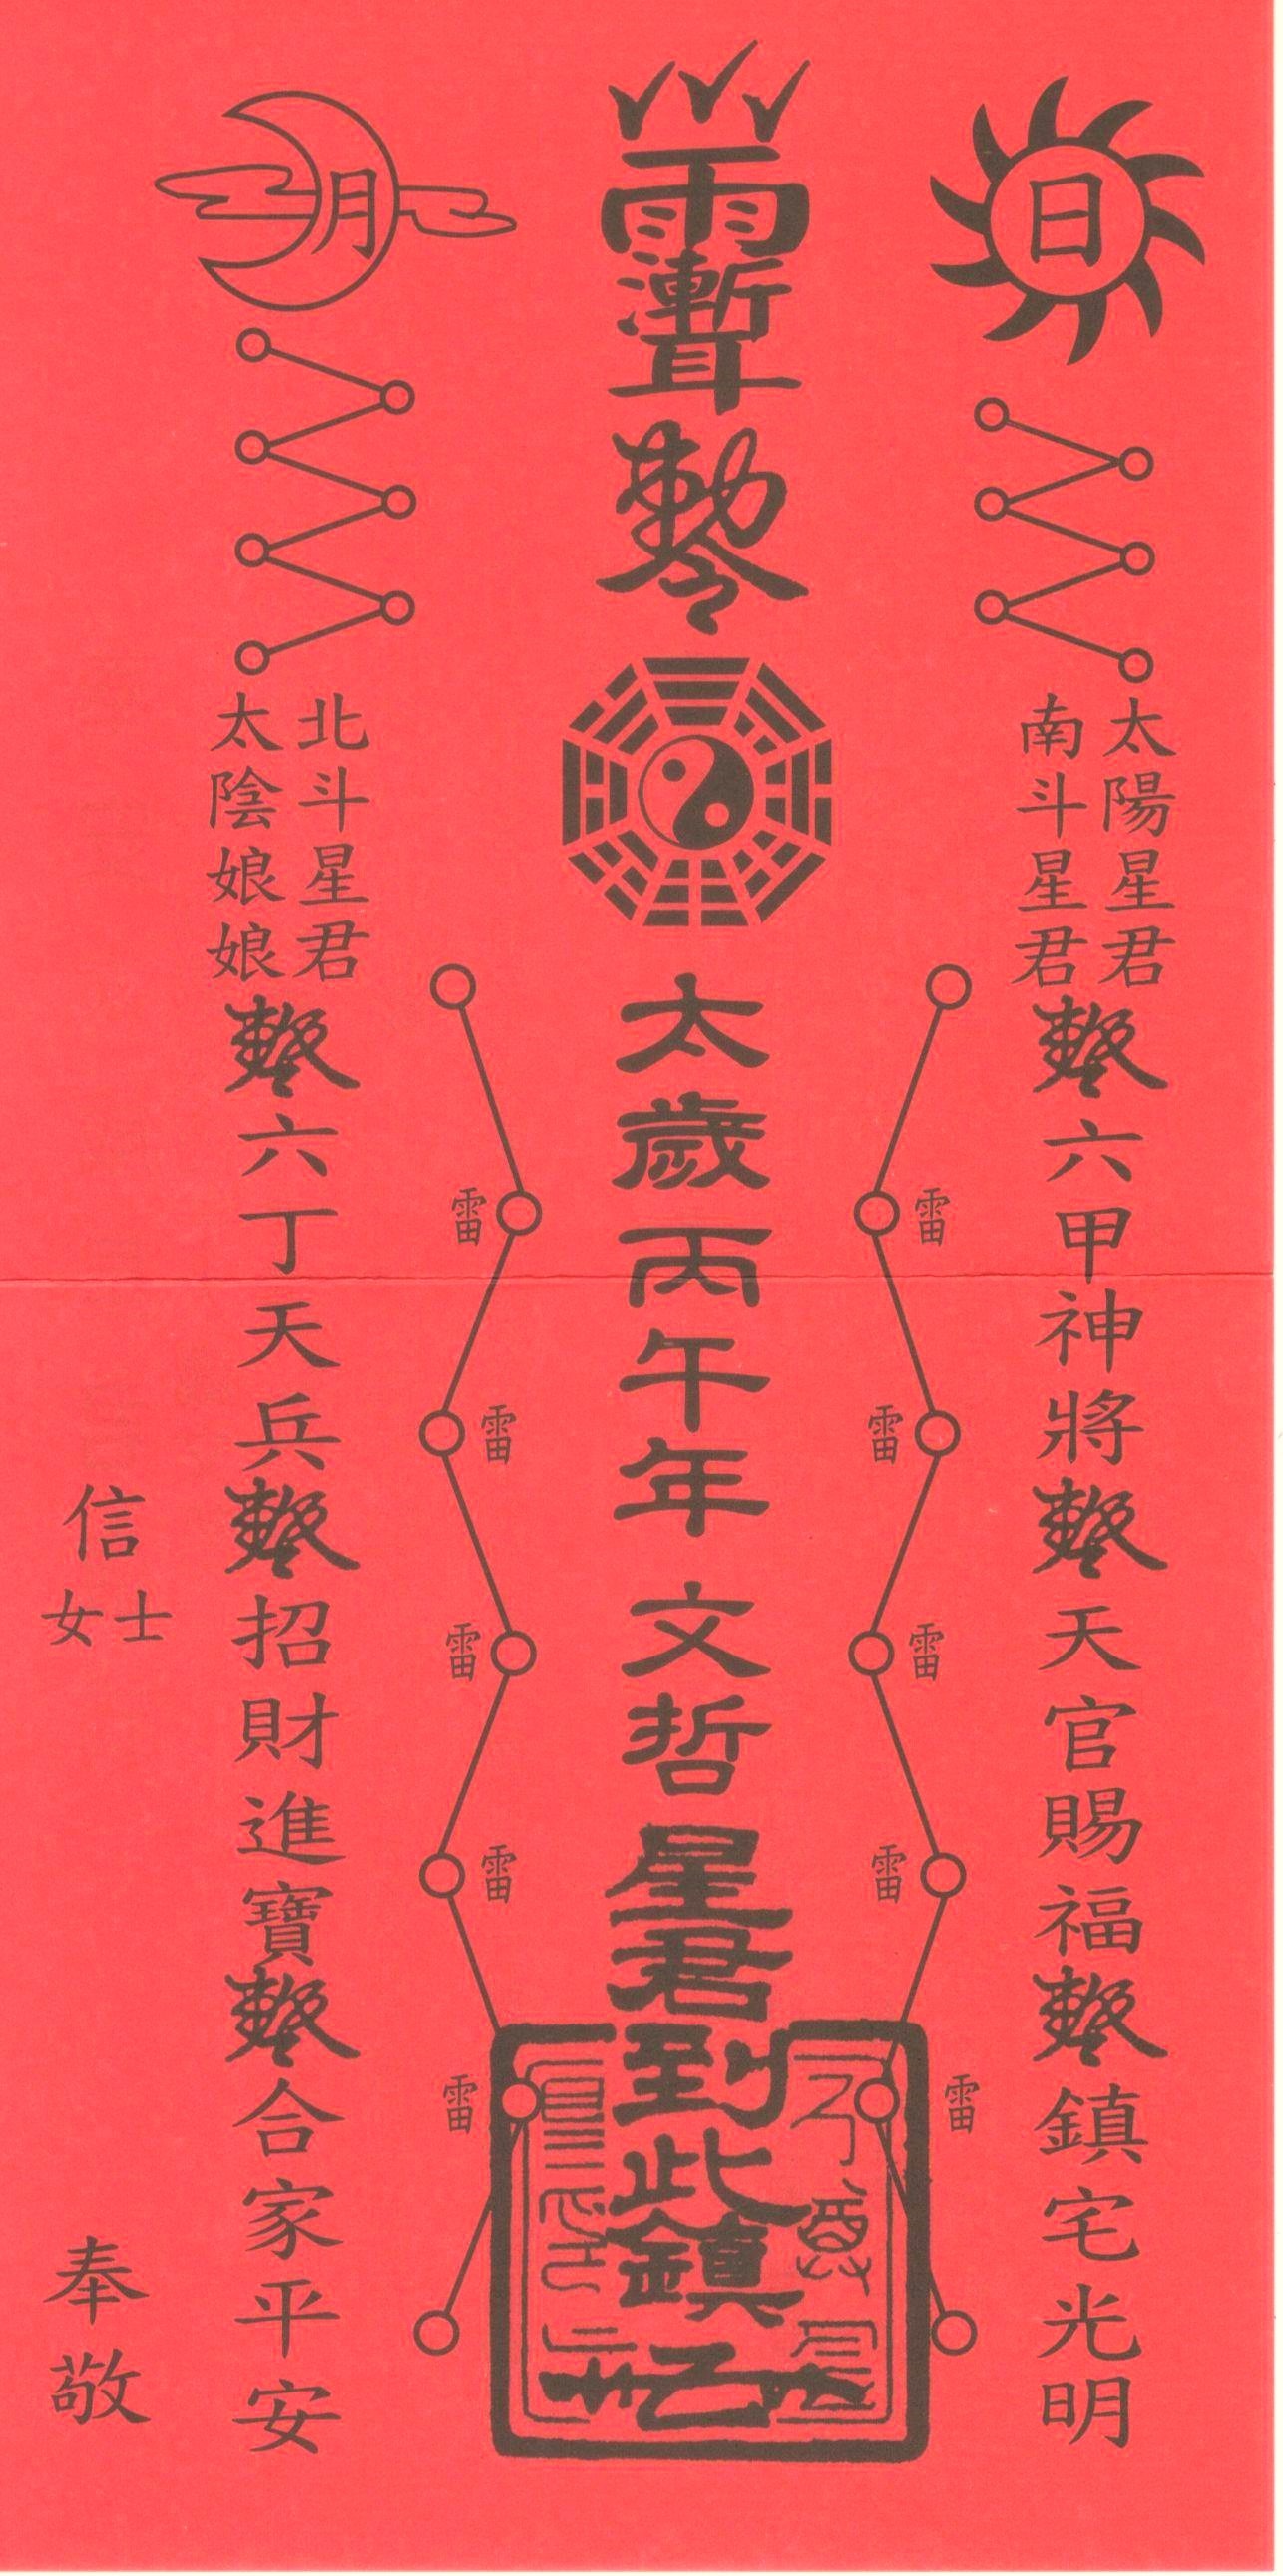 日
太陽星君
南斗星君
六甲神將
天官賜福
鎮宅光明
雷
雷
雷
雷
雷
勅令
太歲丙午年文哲星君到此鎮
雷
雷
雷
雷
雷
月
北斗星君
太陰娘娘
六丁天兵
招財進寶
合家平安
信士女
奉敬